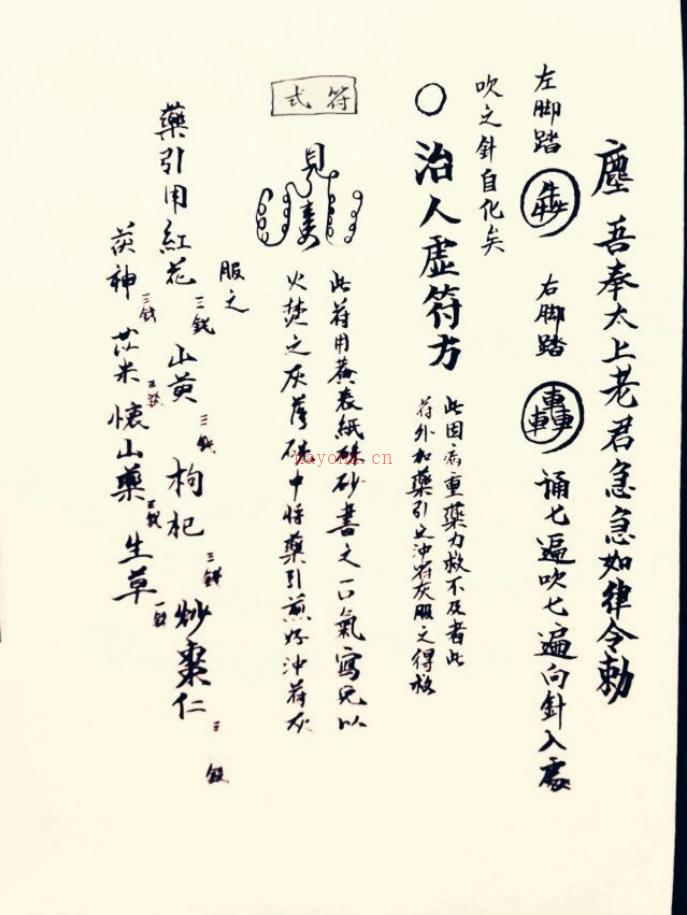 塵吾奉太上老君急急如律令勅
左脚踏 右脚踏 誦七遍吹七遍向針入處
吹之針自化矣
○治人虛符方
此因病重藥力救不及者此
符外加藥引之沖符灰服之得格
符式
此符用黃表紙硃砂書之一口氣寫完以
火焚之灰落碗中將藥引煎好沖符灰
服之
藥引用紅花三錢山黄三錢枸杞三錢炒棗仁三錢
茯神三錢苡米三錢懷山藥三錢生草一錢
nayona.cn